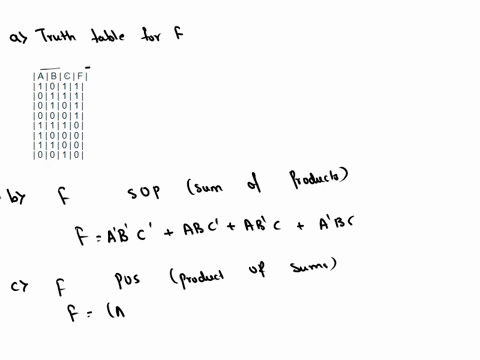 a) Truth table for F
|A|B|C|F|
|1|0|1|1|
|0|1|1|1|
|0|1|0|1|
|0|0|0|1|
|1|1|1|0|
|1|0|0|0|
|1|1|0|0|
|0|0|1|0|
b) F SOP (sum of products)
F = A'B'C' + ABC' + AB'C + A'BC
c) F POS (product of sums)
F = (A